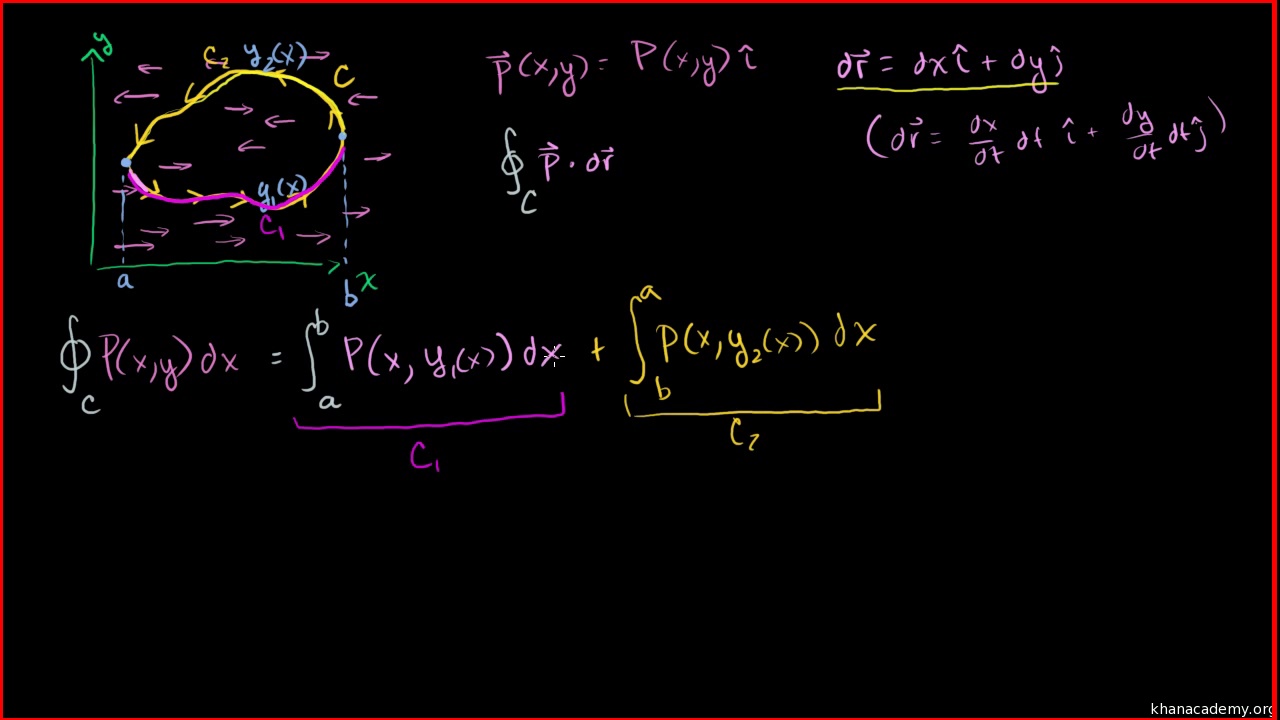 y
C₂ y₂(x)
C
y₁(x)
C₁
a
b
x
p⃗(x,y) = P(x,y) î
∮_C p⃗ · dr⃗
dr⃗ = dx î + dy ĵ
(dr⃗ = dx/dt dt î + dy/dt dt ĵ)
∮_C P(x,y) dx = ∫_a^b P(x, y₁(x)) dx + ∫_b^a P(x, y₂(x)) dx
C₁
C₂
khanacademy.org